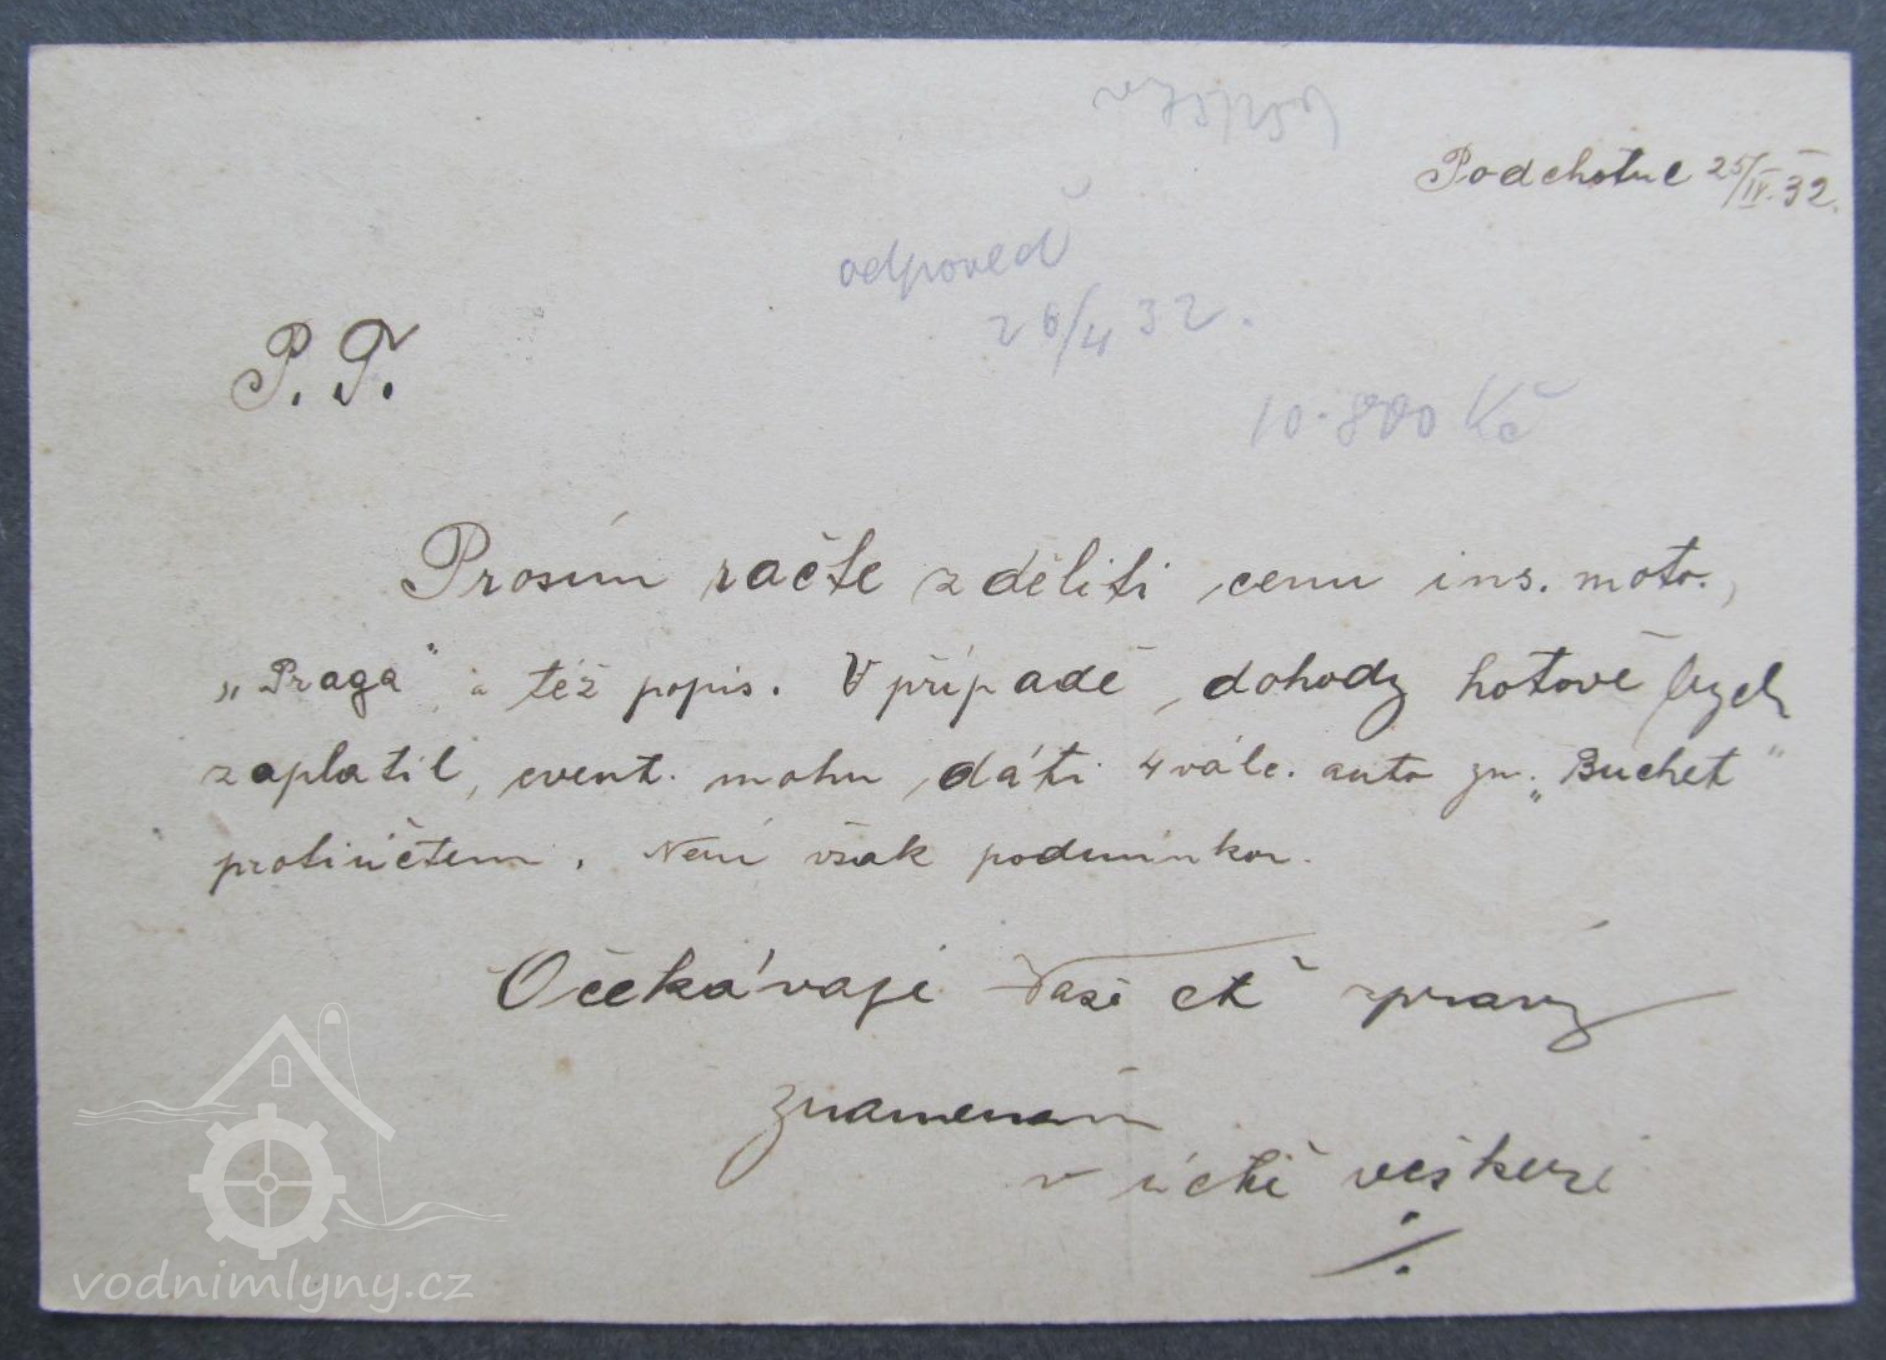 Podchotuc 25/IV. 32.
odpověď
26/4 32.
P. T.
10.800 Kč
Prosím račte zděliti cenu ins. moto.,
„Praga" a též popis. V případě dohody hotově bych
zaplatil, event. mohu dáti 4 válc. auto zn. „Buchet"
protiúčtem. Není však podmínkou.
Očekávaje Vaší ct. zprávy
znamenám
v úctě veškeré
./.
vodnimlyny.cz